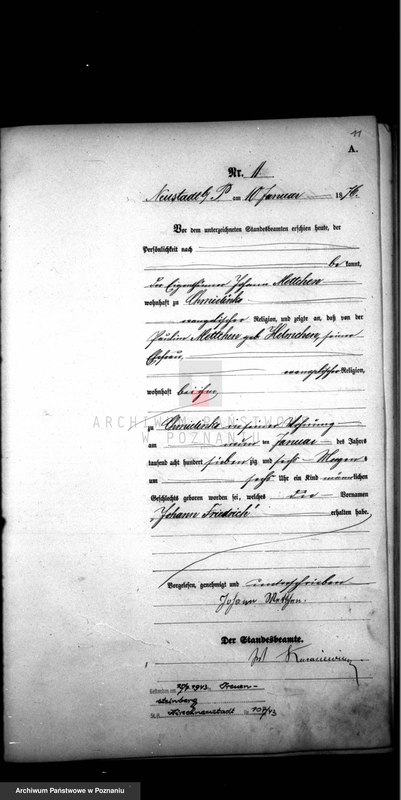 11
A.
Nr. 11
Neustadt b/ P am 10 Januar 1876.
Vor dem unterzeichneten Standesbeamten erschien heute, der
Persönlichkeit nach
be kannt,
der Eigenthümer Johann Mettchen
wohnhaft zu Chmielinko
evangelischer Religion, und zeigte an, daß von der
Pauline Mettchen geb Helmchen, seiner
Ehefrau,
evangelischer Religion,
wohnhaft bei ihm
zu Chmielinko in seiner Wohnung
am ten Januar des Jahrs
tausend acht hundert sieben zig und sechs Morgens
um sechs Uhr ein Kind männlichen
Geschlechts geboren worden sei, welches die Vornamen
"Johann Friedrich"
erhalten habe.
Vorgelesen, genehmigt und unterschrieben
Johann Mettchen.
Der Standesbeamte.
Gestorben am 1943 in Treuen-
steinberg
St. A. Kirschneustadt Nr 107/43
ARCHIWUM PAŃSTWOWE
W POZNANIU
Archiwum Państwowe w Poznaniu